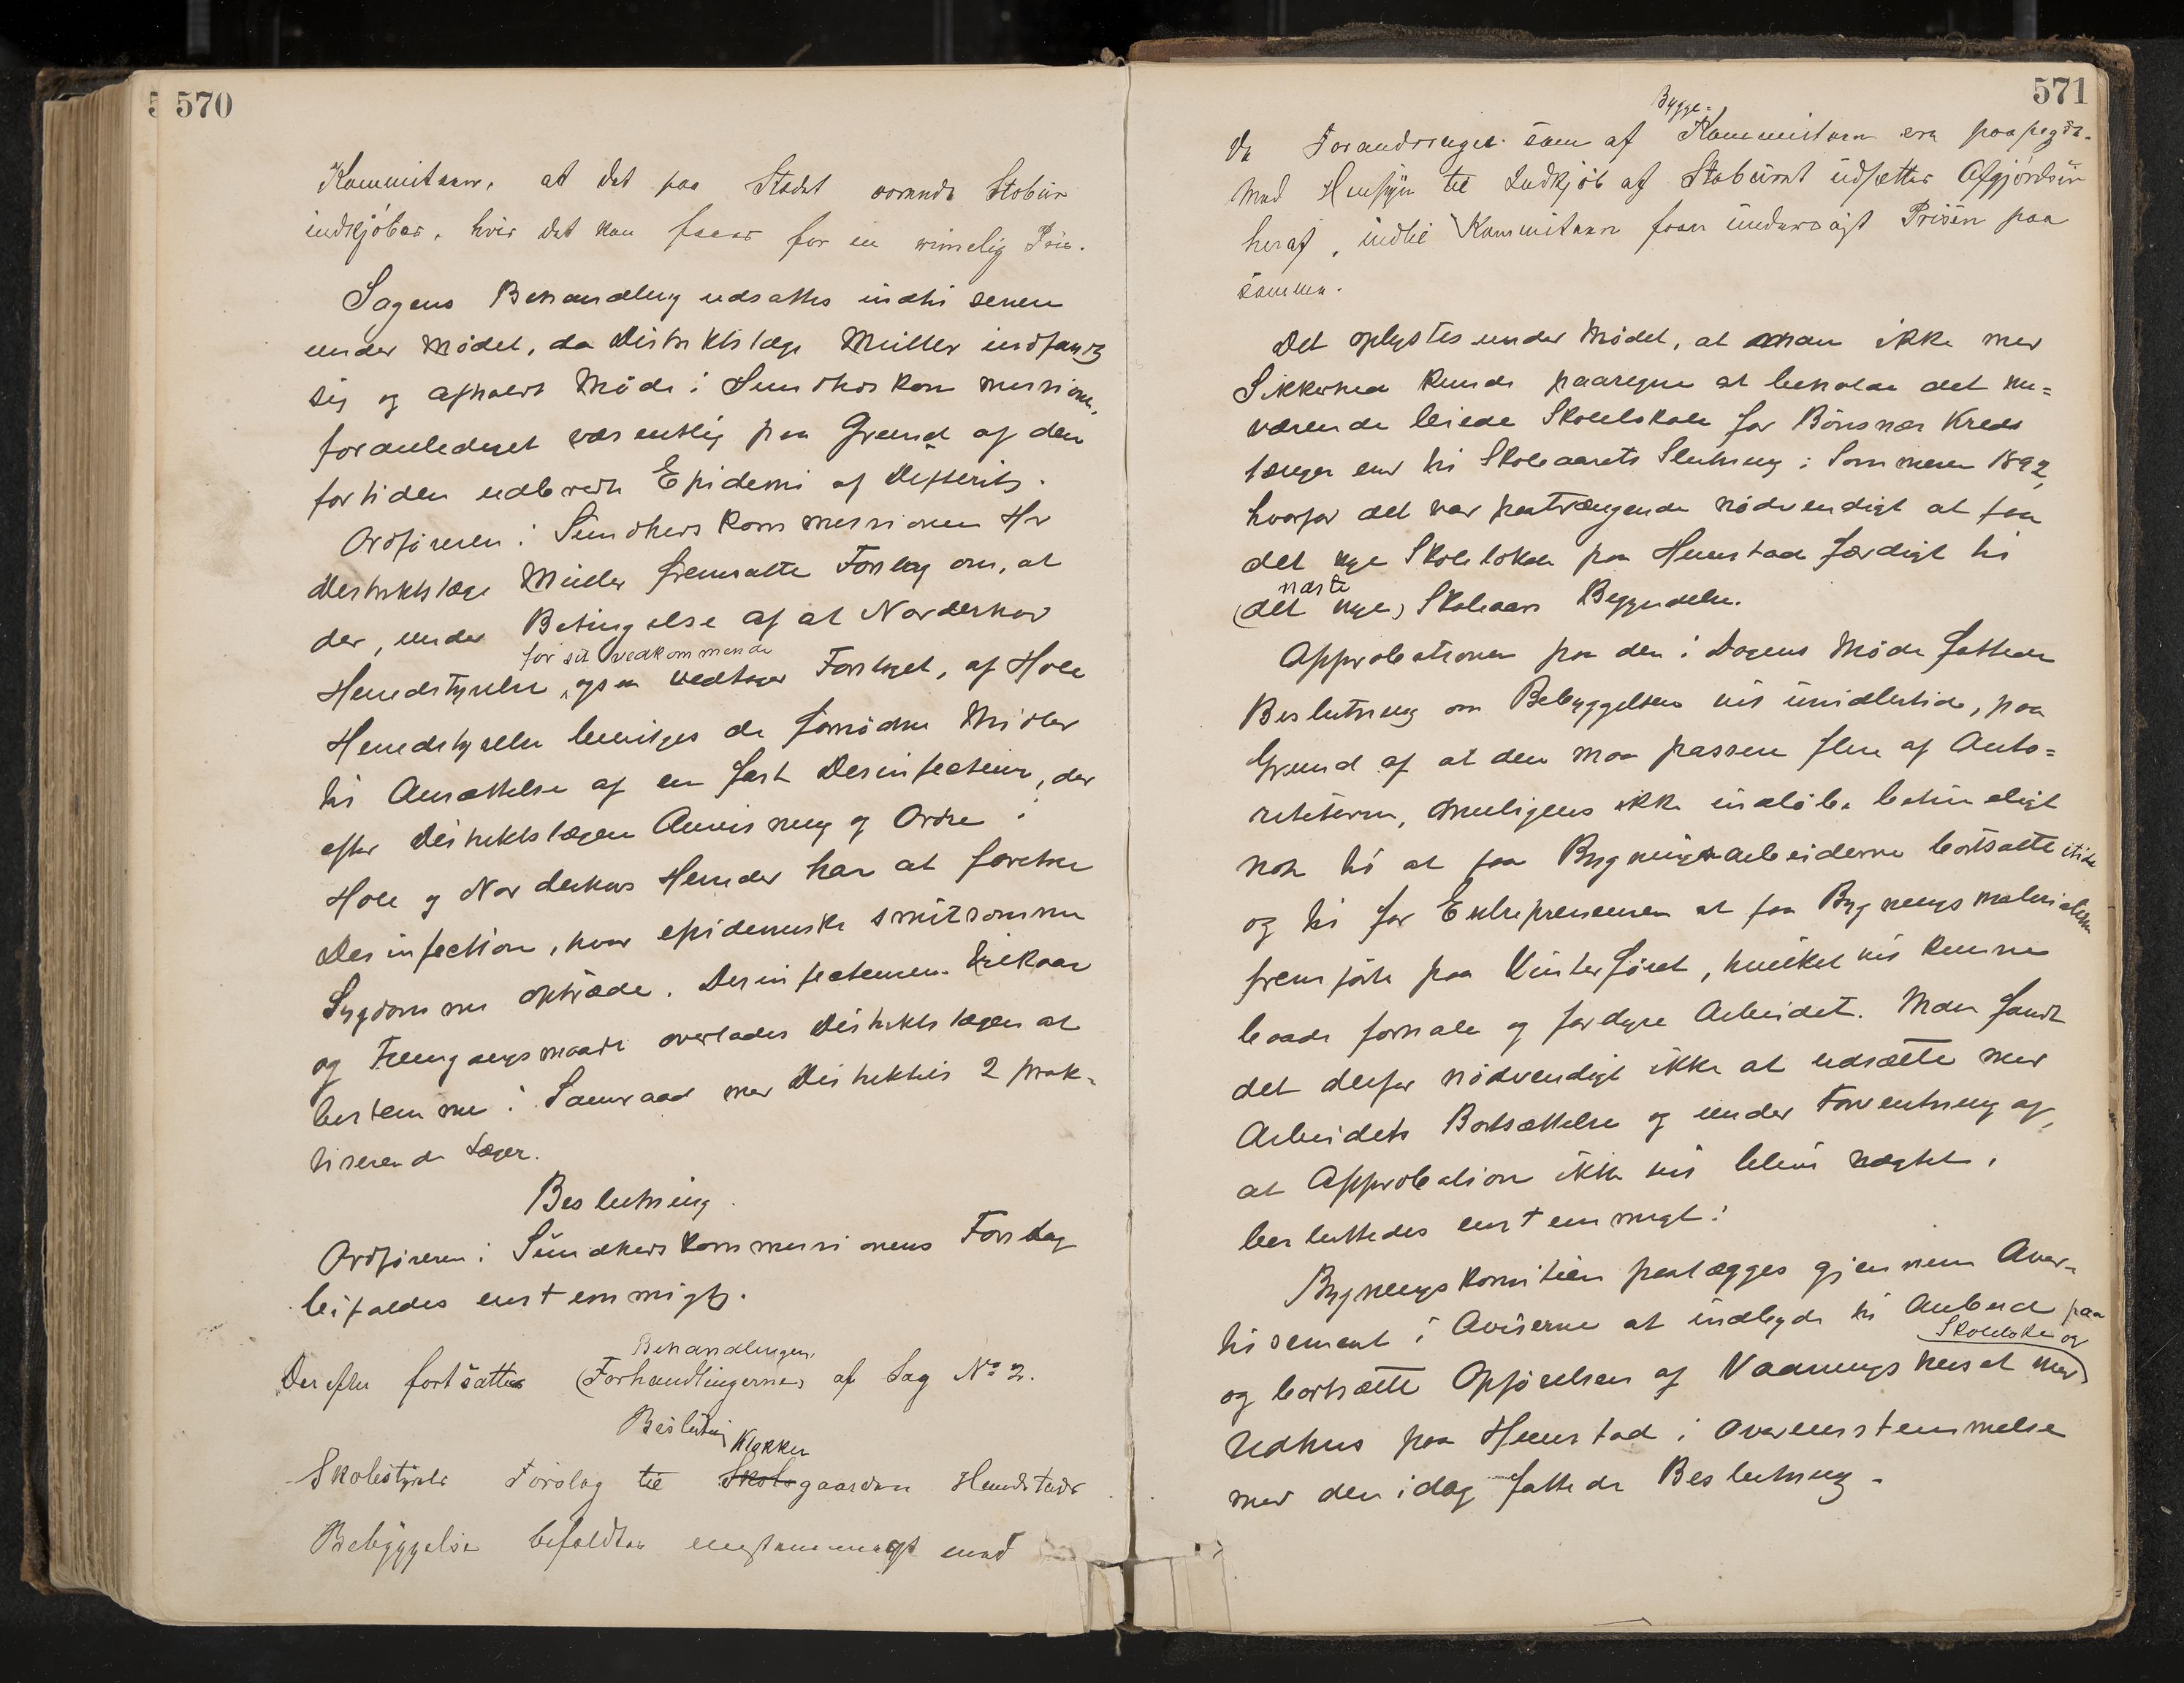 570
Kommiteen, at det paa Stedet værende Stobur
indkjøbes, hvis det kan faaes for en rimelig Pris.
Sagens Behandling udsattes indtil senere
under Mødet, da Distriktslæge Müller indfandt
sig og afholdt Møde i Sundhedskommissionen,
foranlediget væsentlig paa Grund af den
for tiden udbredte Epidemi af Difterit.
Ordføreren i Sundhedskommissionen Hr
Distriktslæge Müller fremsatte Forslag om, at
der, under Betingelse af at Norderhov
for sit Vedkommende
Herredstyrelse ogsaa vedtager Forslaget, af Hole
Herredstyrelse bevilges de fornødne Midler
til Ansættelse af en fast Desinfecteur, der
efter Distriktslægens Anvisning og Ordre i
Hole og Norderhovs Herreder har at foretage
Desinfection, hvor epidemiske smitsomme
Sygdomme optræde. Desinfecteurens Vilkaar
og Fremgangsmaade overlades Distriktslægen at
bestemme i Samraad med Distriktets 2 prak-
tiserende Læger.
Beslutning.
Ordføreren i Sundhedskommissionens Forslag
bifaldes enstemmigt.
Behandlingen
Derefter fortsattes (Forhandlingerne) af Sag No 2.
Beslutning
Klokker
Skolestyrets Forslag til Skolegaarden Hundstads
Bebyggelse bifaldtes enstemmigt med
571
Bygge-
de Forandringer som af Kommiteen ere paapegede.
Med Hensyn til Indkjøb af Stoburet udsættes Afgjørelsen
heraf, indtil Kommiteen faar undersøgt Prisen paa
samme.
Det oplystes under Mødet, at man ikke med
Sikkerhed kunde paaregne at beholde det nu-
værende leiede Skolelokale for Bönsnæs Kreds
længer end til Skoleaarets Slutning i Sommeren 1892,
hvorfor det var paatrængende nødvendigt at faa
det nye Skolelokale paa Hunstad færdigt til
næste
(det nye) Skoleaars Begyndelse.
Approbationen paa den i Dagens Møde fattede
Beslutning om Bebyggelsen vil imidlertid, paa
Grund af at den maa passere flere af Auto-
riteterne, muligens ikke indløbe betimeligt
nok til at faa Bygningsarbeiderne bortsatte itide
og til for Entrepreneuren at faa Bygningsmaterialerne
fremkjørte paa Vinterføret, hvilket vil kunne
baade forhale og fordyre Arbeidet. Man fandt
det derfor nødvendigt ikke at udsætte med
Arbeidets Bortsættelse og under Forventning af,
at Approbation ikke vil blive nægtet,
besluttedes enstemmigt:
Bygningskomiteen paalægges gjennem Aver-
tisement i Aviserne at indbyde til Anbud paa
Skolelokale og
og bortsætte Opførelsen af Vaaningshuset med
Udhus paa Hunstad i Overensstemmelse
med den idag fattede Beslutning.